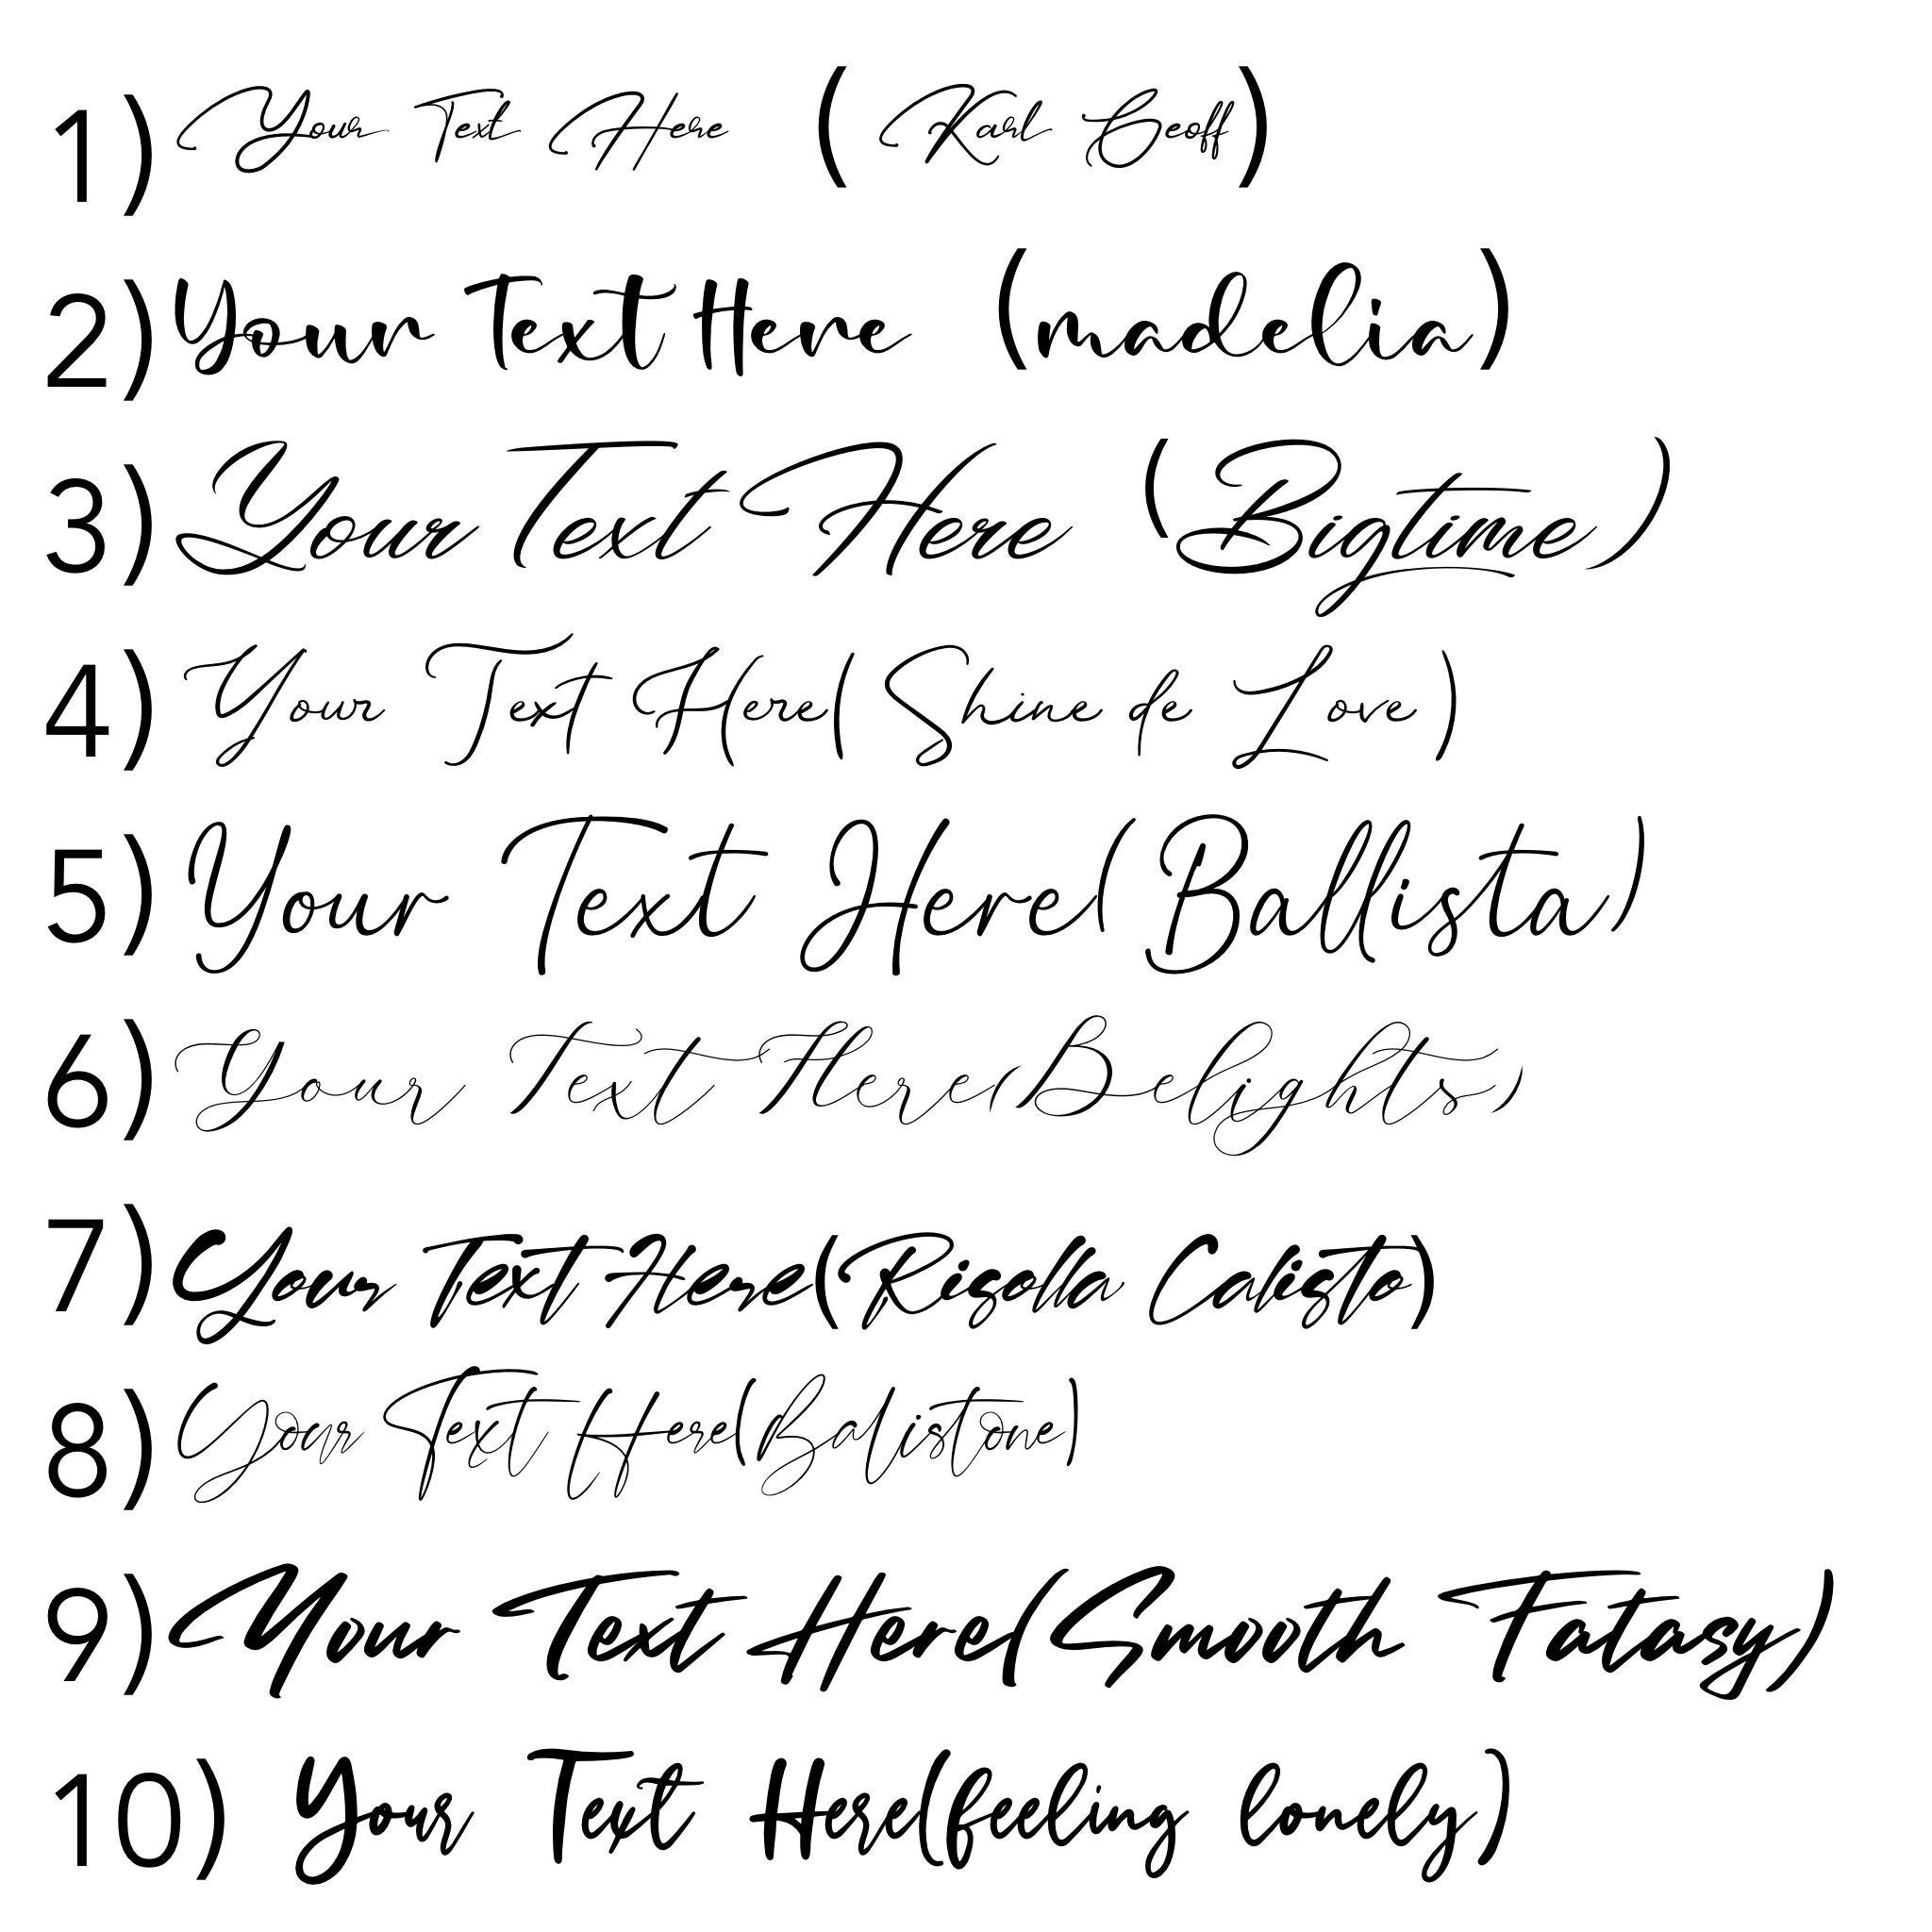 1) Your Text Here ( Karl Geoff)
2) Your Text Here (madelia)
3) Your Text Here (Bigtime)
4) Your Text Here( Shine de Love)
5) Your Text Here(Ballista)
6) Your Text Here(Delights)
7) Your Text Here(Rigolla Calisto)
8) Your Text Here(Balistone)
9) Your Text Here(Smooth Fatasy)
10) Your Text Here(feeling lonely)